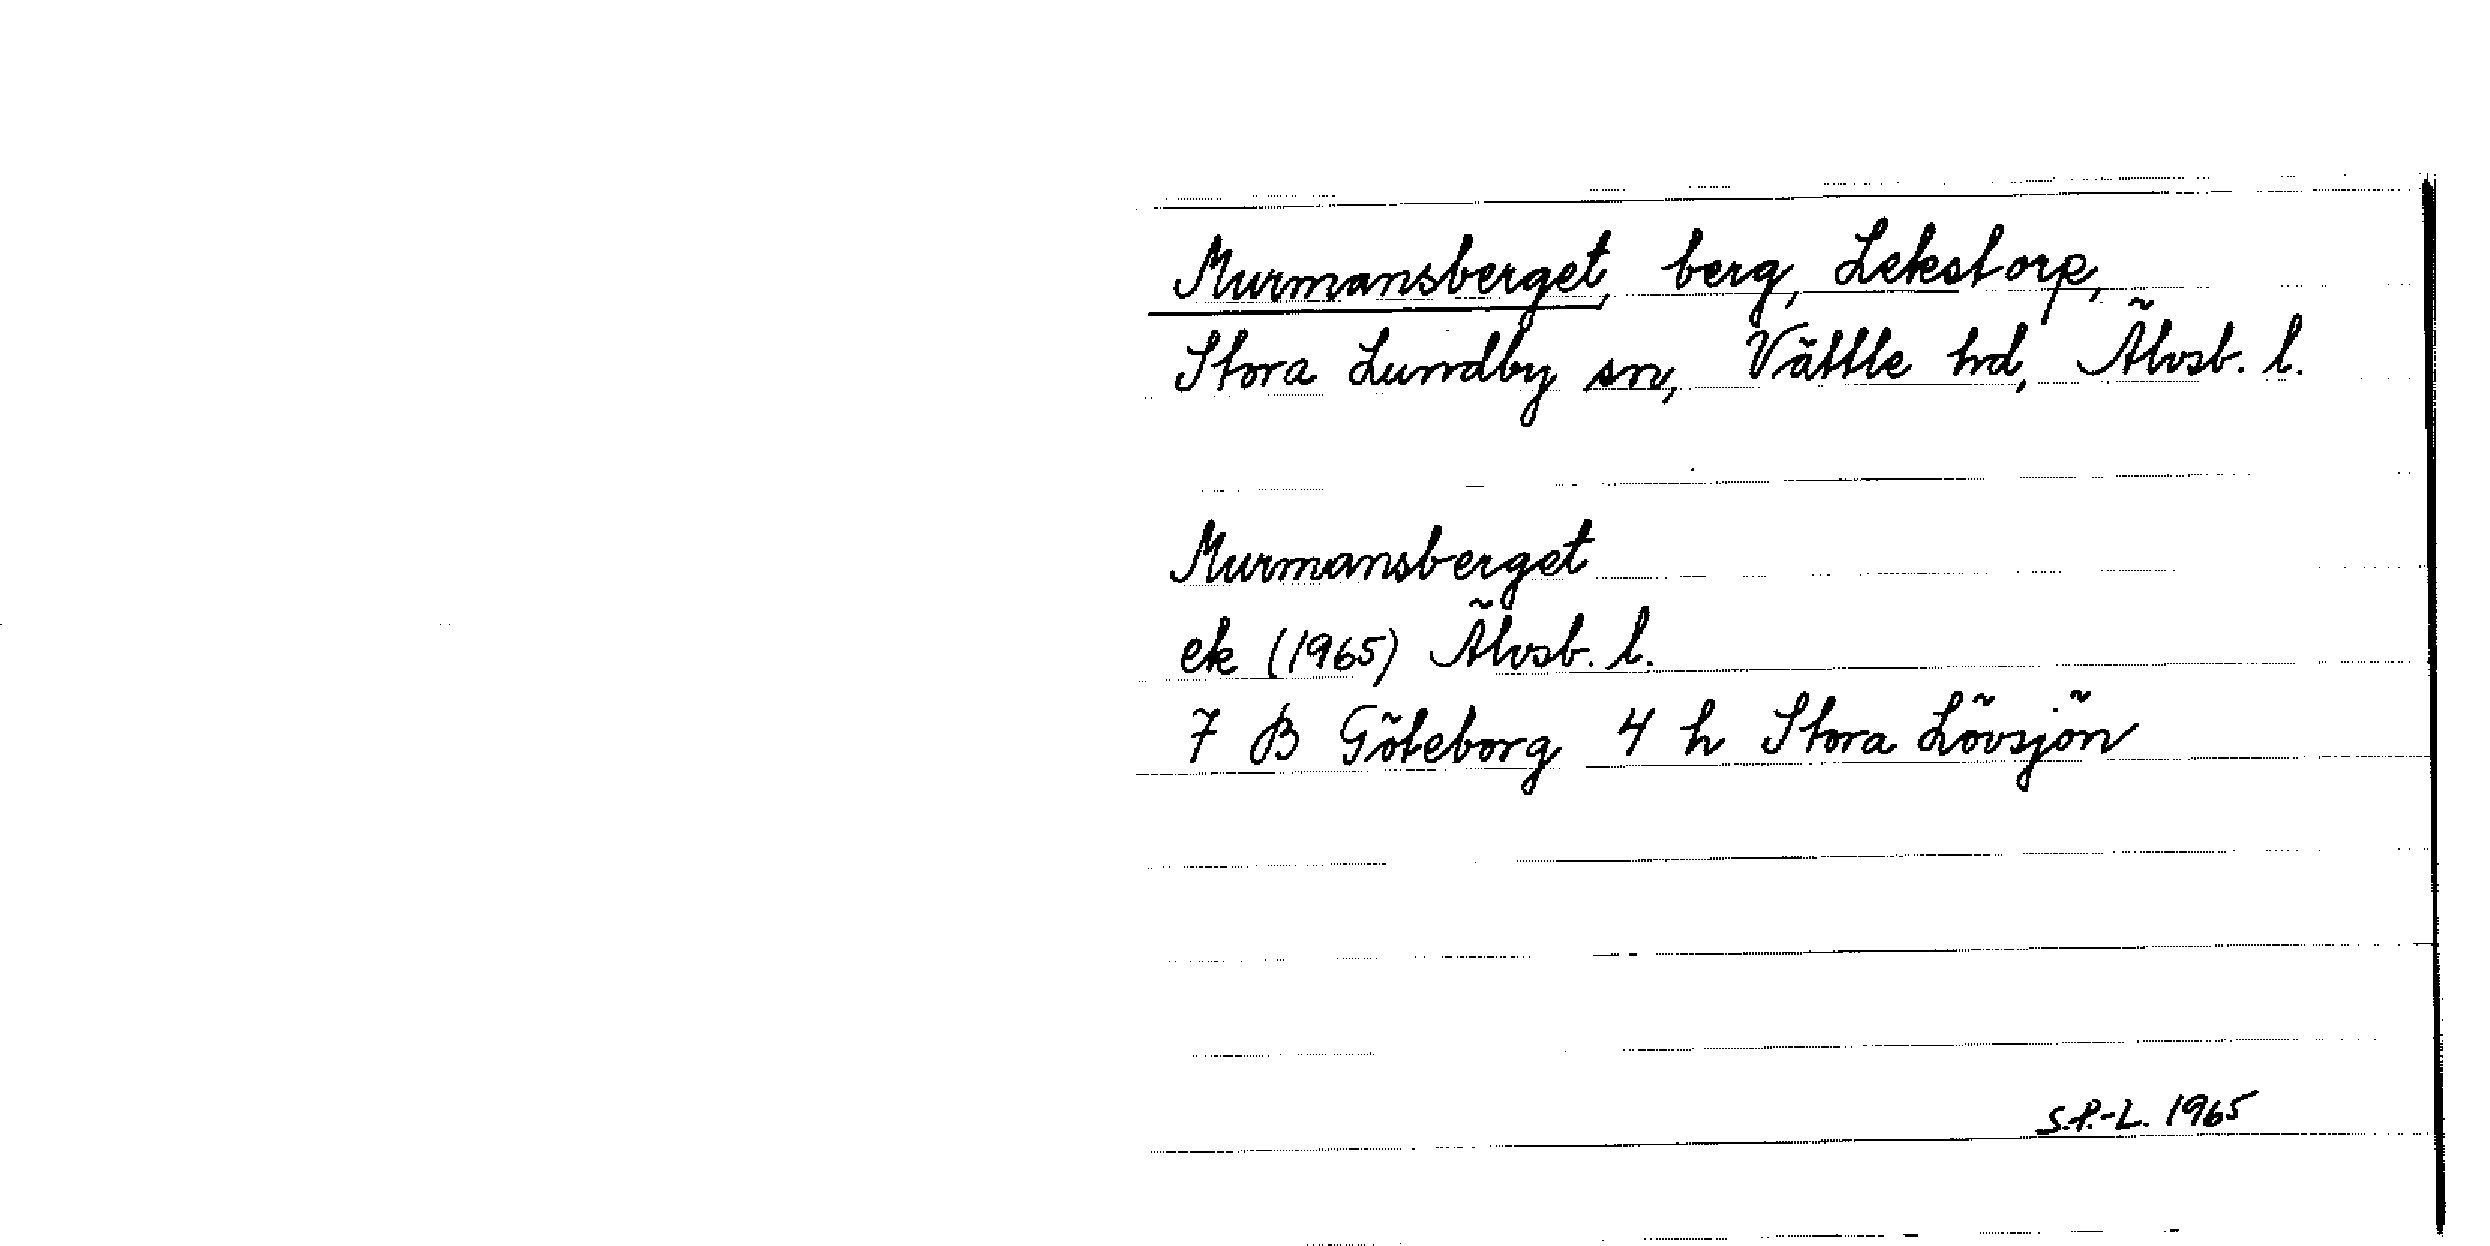 Murmansberget, berg, Lekstorp,
Stora Lundby sn, Vättle hd, Älvsb. l.
Murmansberget
ek (1965) Älvsb. l.
7 B Göteborg 4 h Stora Lövsjön
S.P.-L. 1965